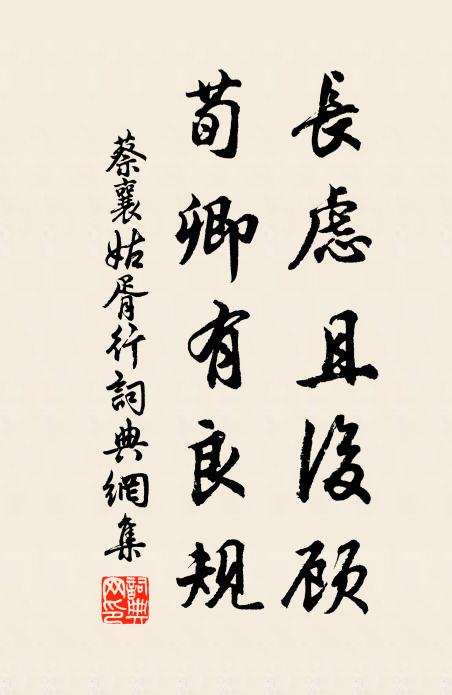 長慮且後顧
荀卿有良規
蔡襄姑胥行詞典網集
詞典網印